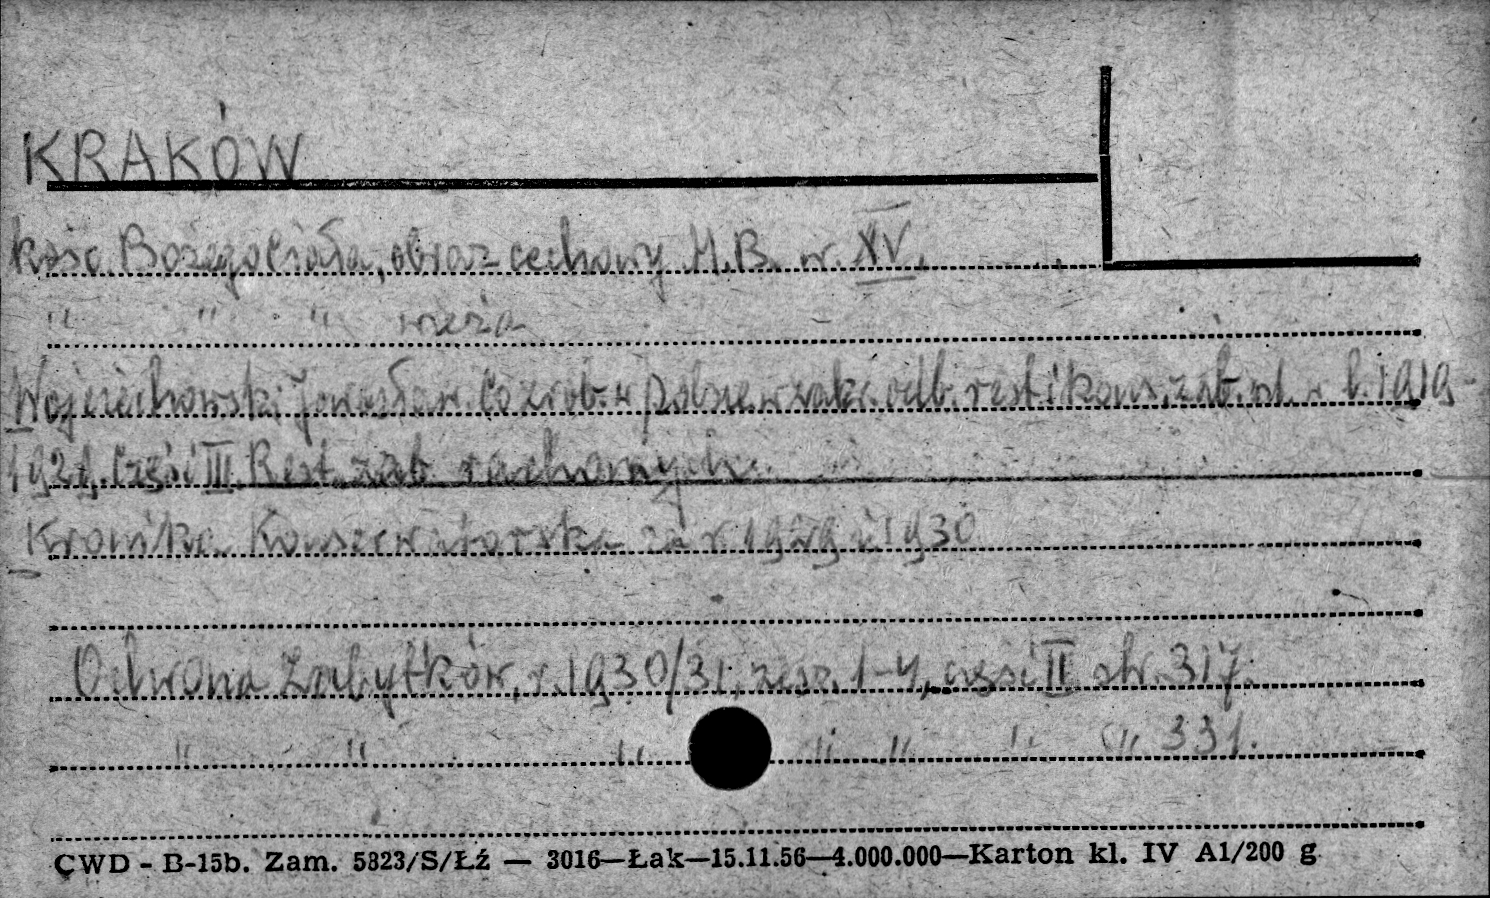 KRAKÓW
kośc. Bożego Ciała, obraz cechowy M.B. w. XV.
" " " wieża
Wojciechowski Jarosław. Co zrob. w Polsce w zakr. odb. rest. i kons. zab. szt. w l. 1919-
1929. Część III Rest. zab. ruchomych.
Kronika Konserwatorska za r. 1929 i 1930
Ochrona Zabytków, r. 1930/31, zesz. 1-4, część II str. 317.
" " " " " " " 331.
CWD - B-15b. Zam. 5823/S/Łź — 3016—Łak—15.11.56—4.000.000—Karton kl. IV A1/200 g